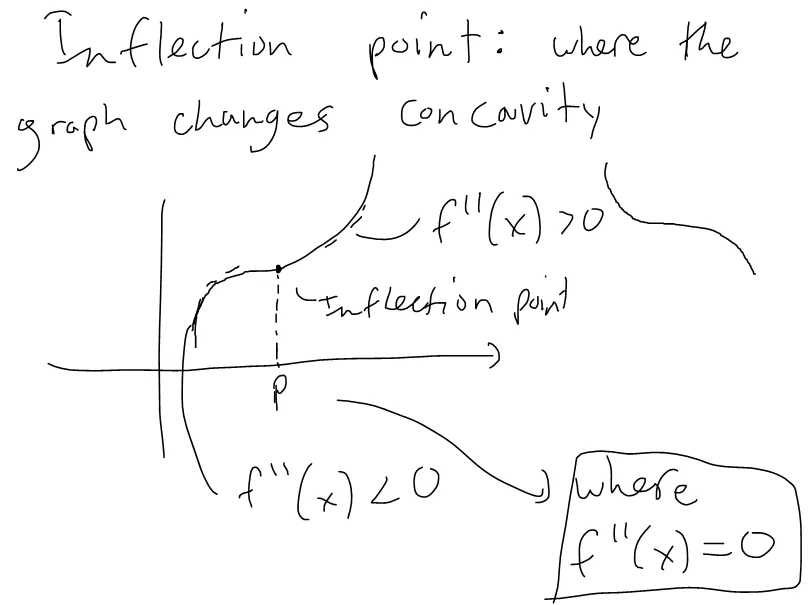 Inflection point: where the
graph changes concavity
f''(x) > 0
Inflection point
p
f''(x) < 0
where
f''(x) = 0